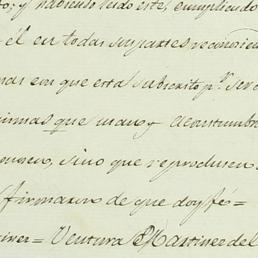 to; y habiendo leido este, cumpliendo
el en todas sus partes reconocien
mas con que esta subscrito pr. ser
irmas que usan y acostumbr
nuevo, sino que reproducen
firmaron de que doy fé=
= Ventura Martinez del